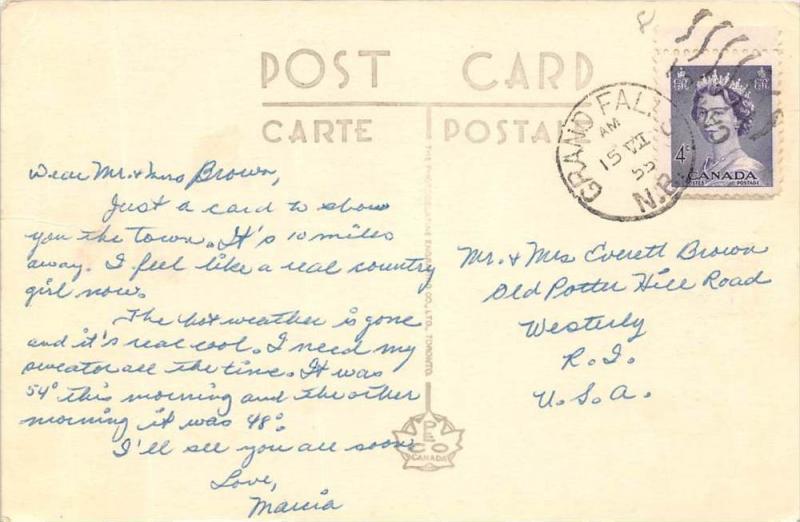 POST CARD
CARTE POSTALE
GRAND FALLS
AM
15 VII
55
N.B.
4c
CANADA
POSTES POSTAGE
Dear Mr. & Mrs Brown,
Just a card to show
you the town. It's 10 miles
away. I feel like a real country
girl now.
The hot weather is gone
and it's real cool. I need my
sweator all the time. It was
54° this morning and the other
morning it was 48°.
I'll see you all soon
Love,
Marcia
THE PHOTOGELATINE ENGRAVING CO., LTD. TORONTO.
PECO
CANADA
Mr. & Mrs Everett Brown
Old Potter Hill Road
Westerly
R.I.
U.S.A.